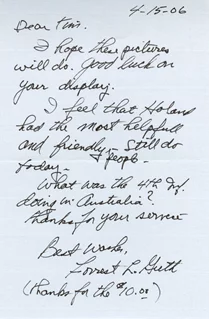 4-15-06
Dear Tim.
I hope these pictures
will do. Good luck on
your display.
I feel that Holand
had the most helpfull
and friendly people - Still do
today -
What was the 4th Inf.
doing in Australia?
Thanks for your service
Best Wishes,
Forrest L. Guth
(Thanks for the $10.00)